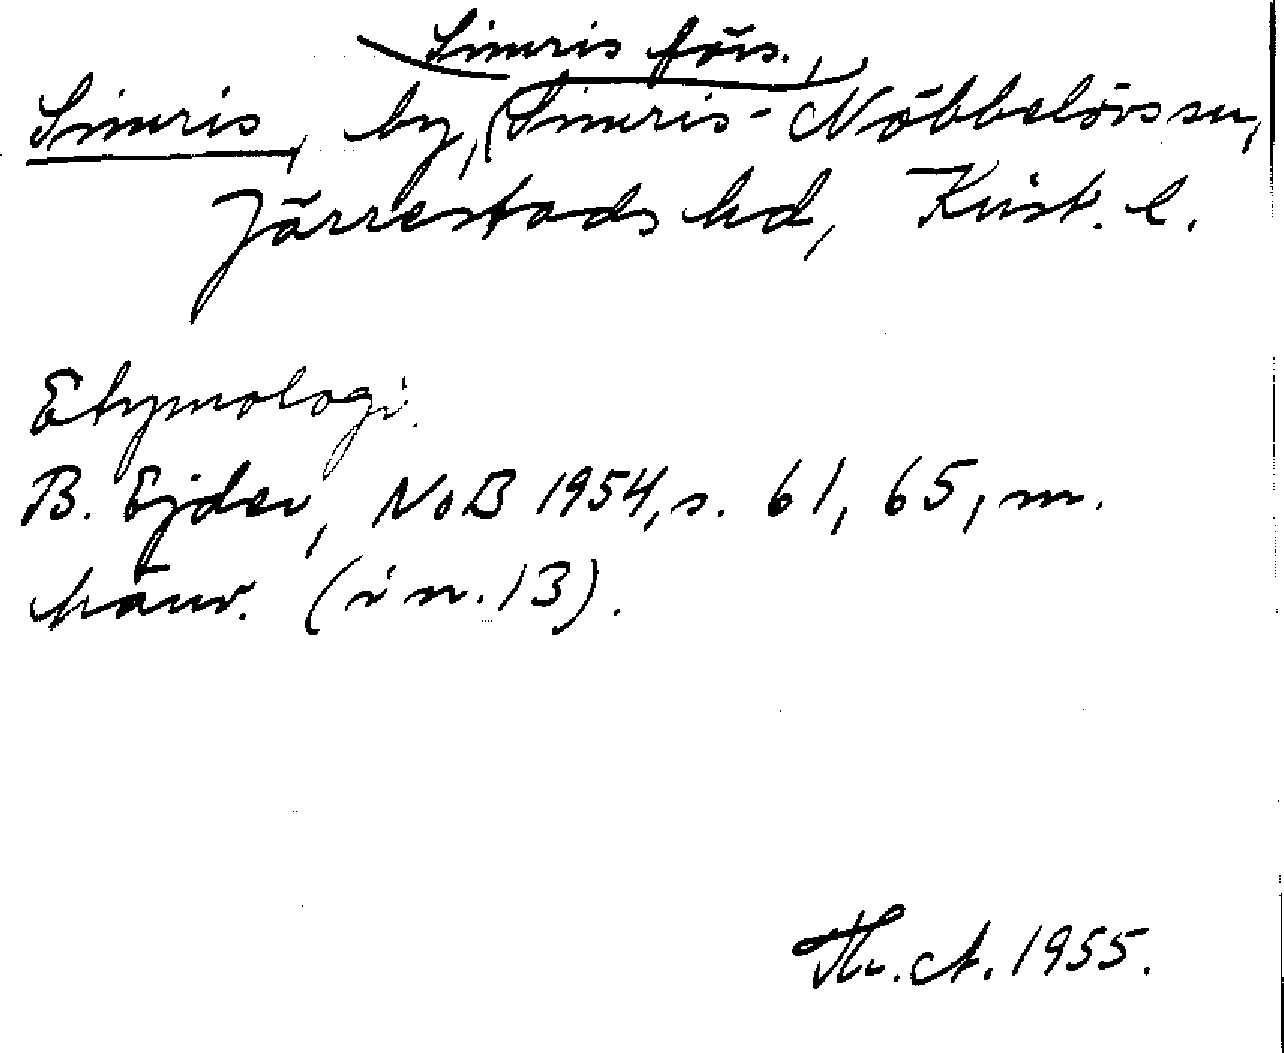 Simris förs.,
Simris, by, (Simris-Nöbbelövs sn,
Järrestads hd, Krist. l.
Etymologi.
B. Ejder, NoB 1954, s. 61, 65, m.
hänv. (i n. 13).
Th. A. 1955.